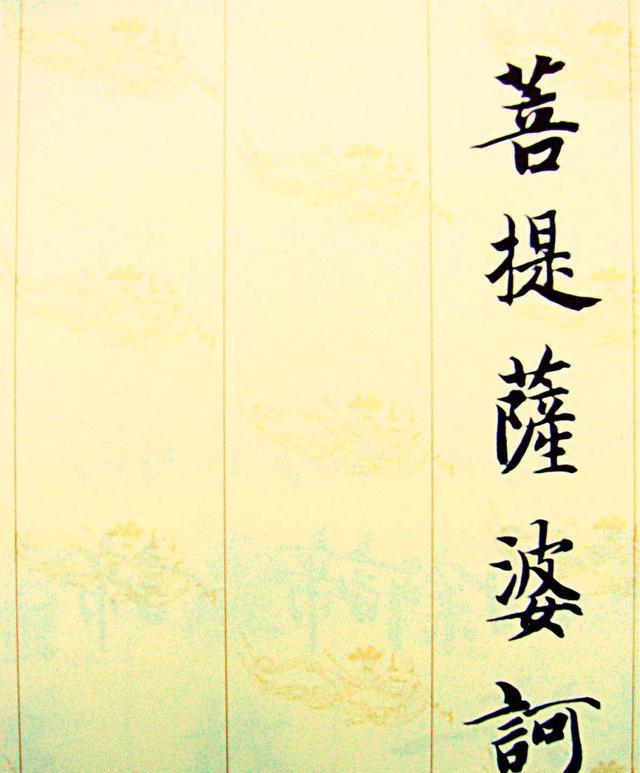 菩提薩婆訶